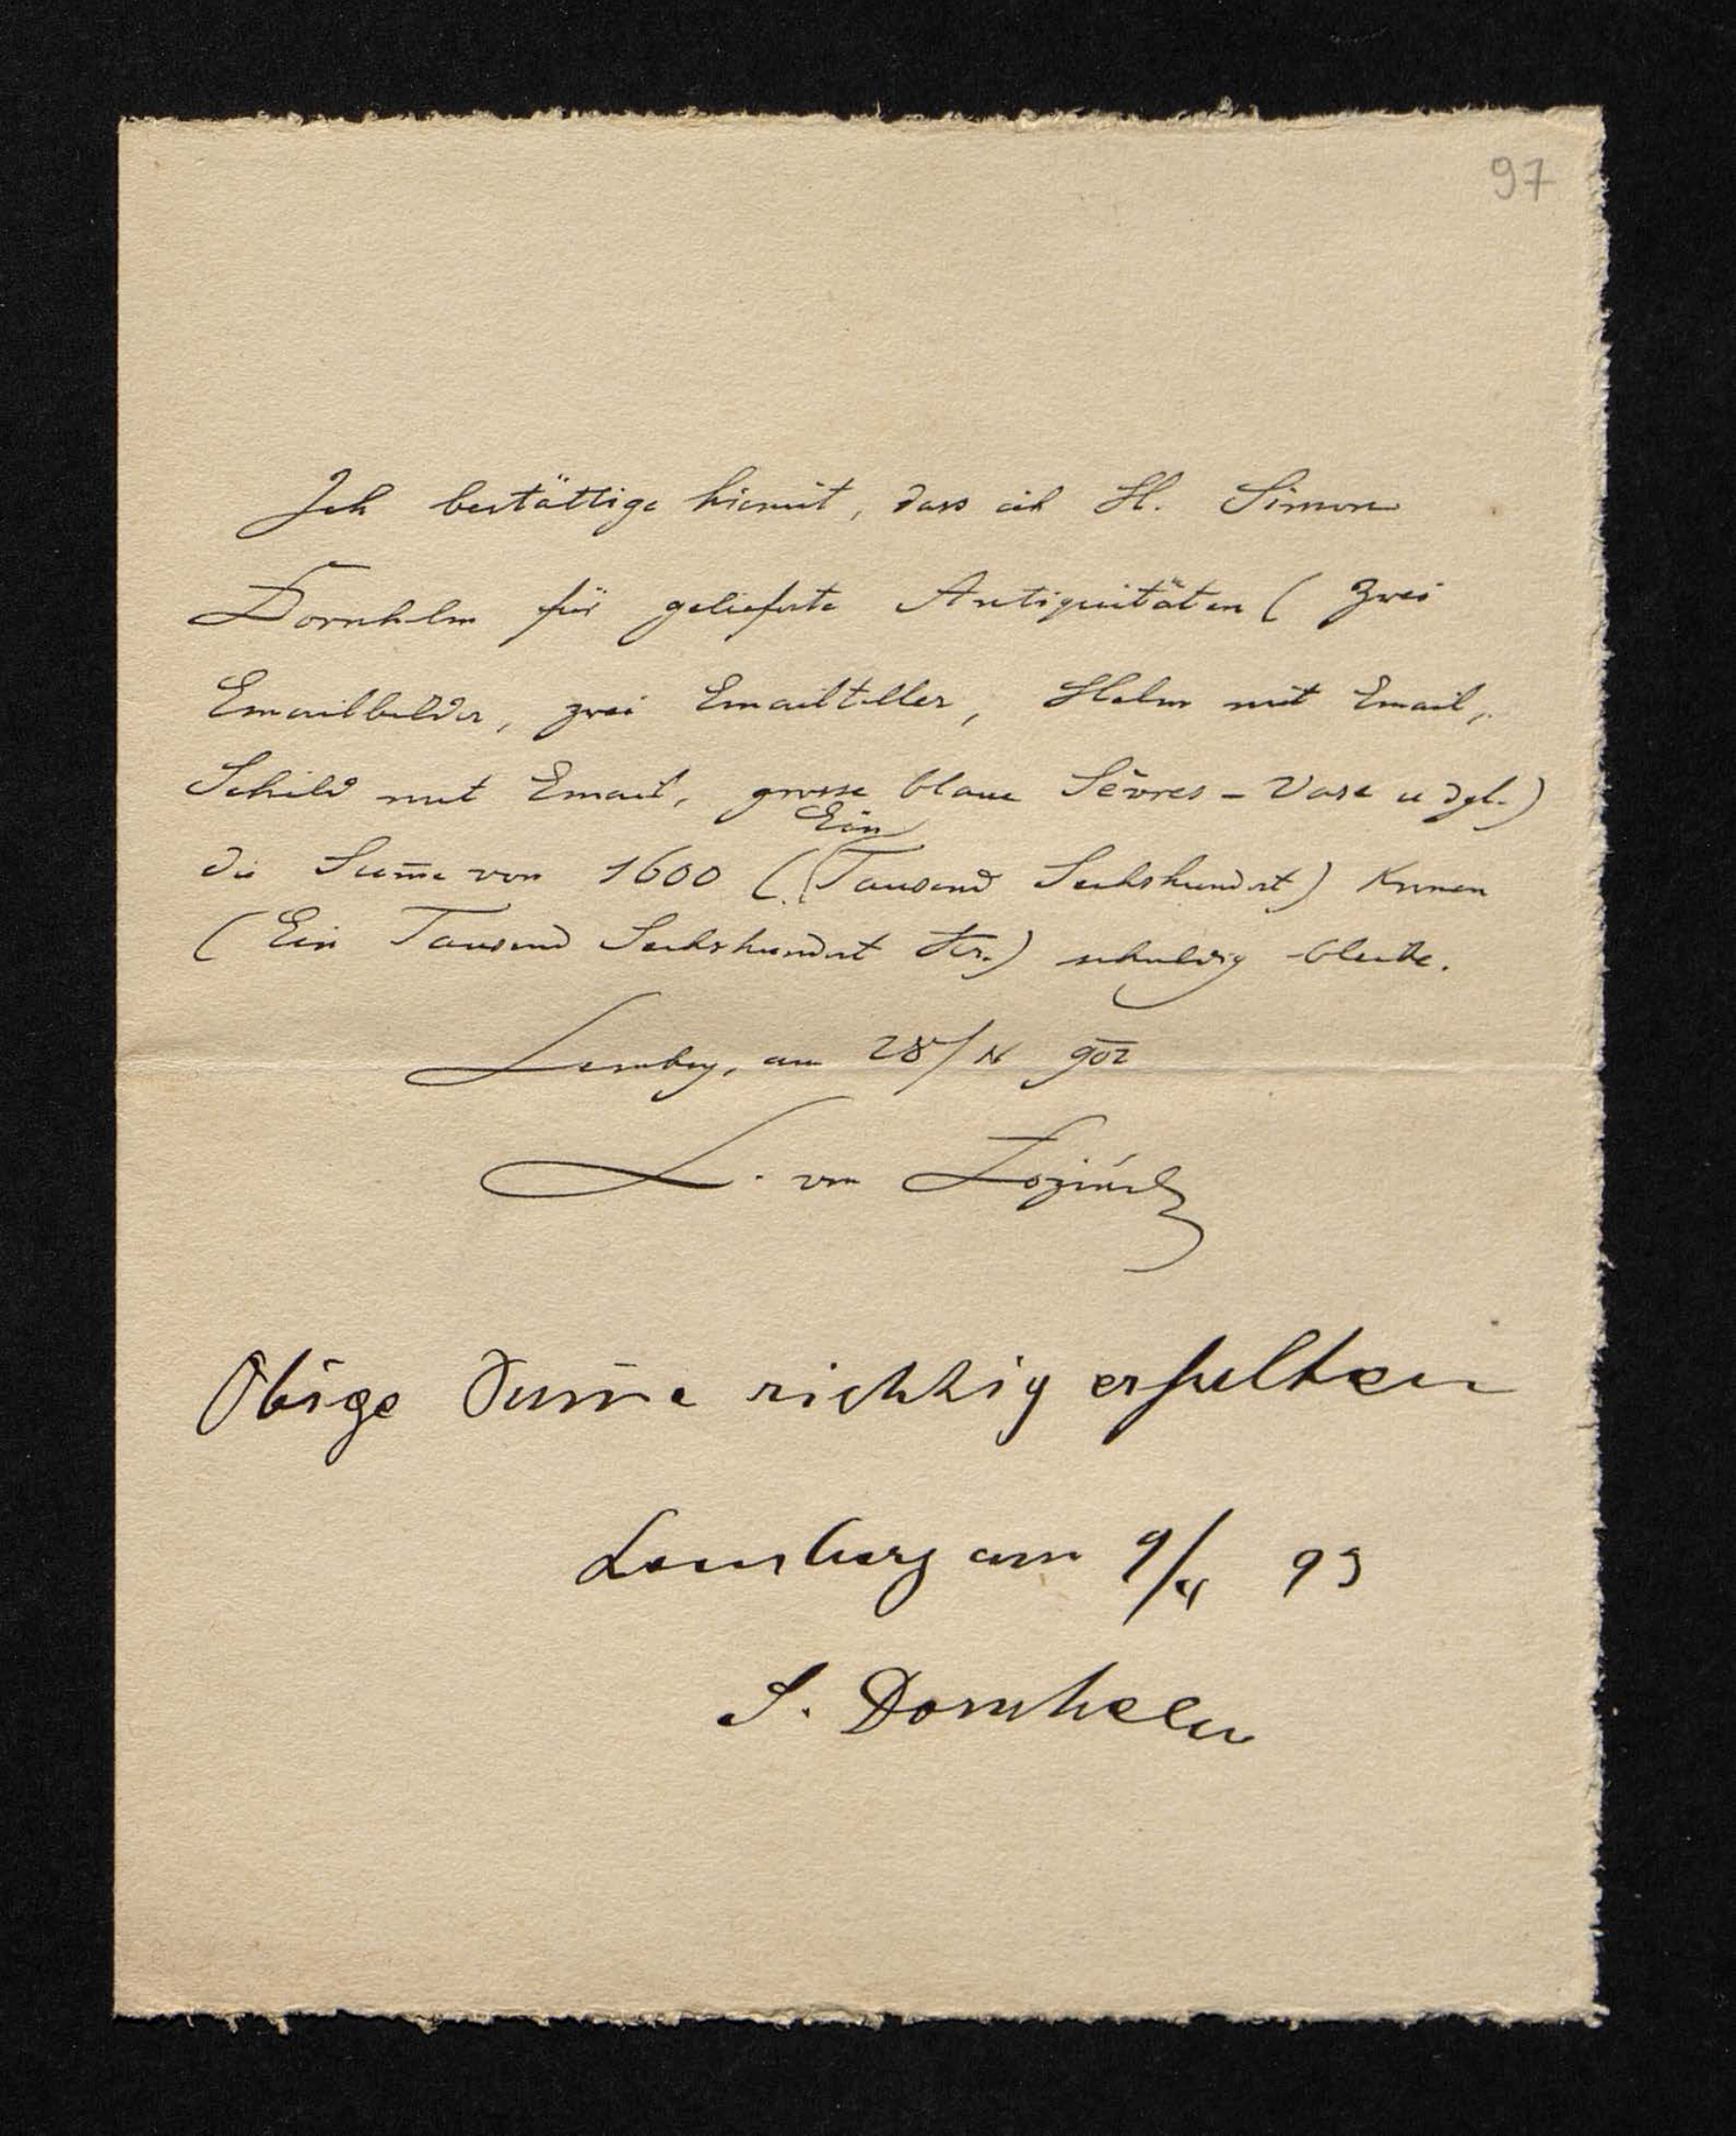 97
Ich bestättige hiemit, dass ich H. Simon
Dornhelm für gelieferte Antiquitäten ( zwei
Emailbilder, zwei Emailteller, Helm mit Email,
Schild mit Email, grosse blaue Sèvres - Vase u dgl.)
Ein
die Sum̄e von 1600 ( Tausend Sechshundert) Kronen
( Ein Tausend Sechshundert Kr.) schuldig bleibe.
Lemberg, am 28/ 902
L. von Łoziński
Obige Sum̄e richtig erhalten
Lemberg am 9/ 93
S. Dornhelm